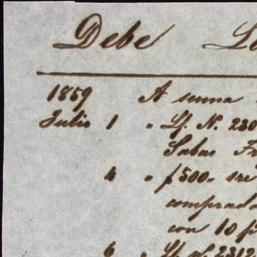 Debe
1859 A suma
Julio 1 " L. N. 230
Salas
4 " $500"
comprad
con 10 p
6 " L. n. 2312